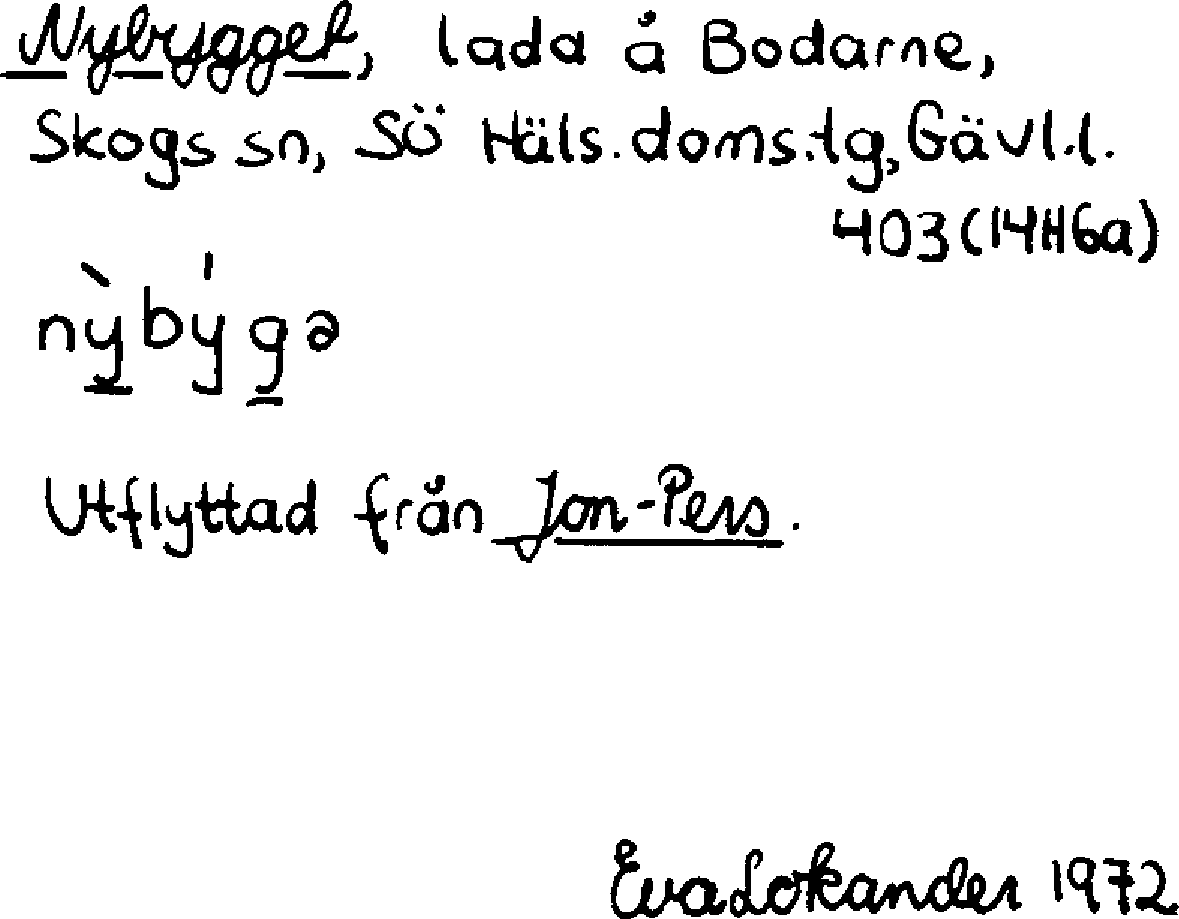 Nybygget, lada å Bodarne,
Skogs sn, Sö Häls.doms.tg, Gävl.l.
403 (14H6a)
nỳbýgə
Utflyttad från Jon-Pers.
Eva Lokander 1972